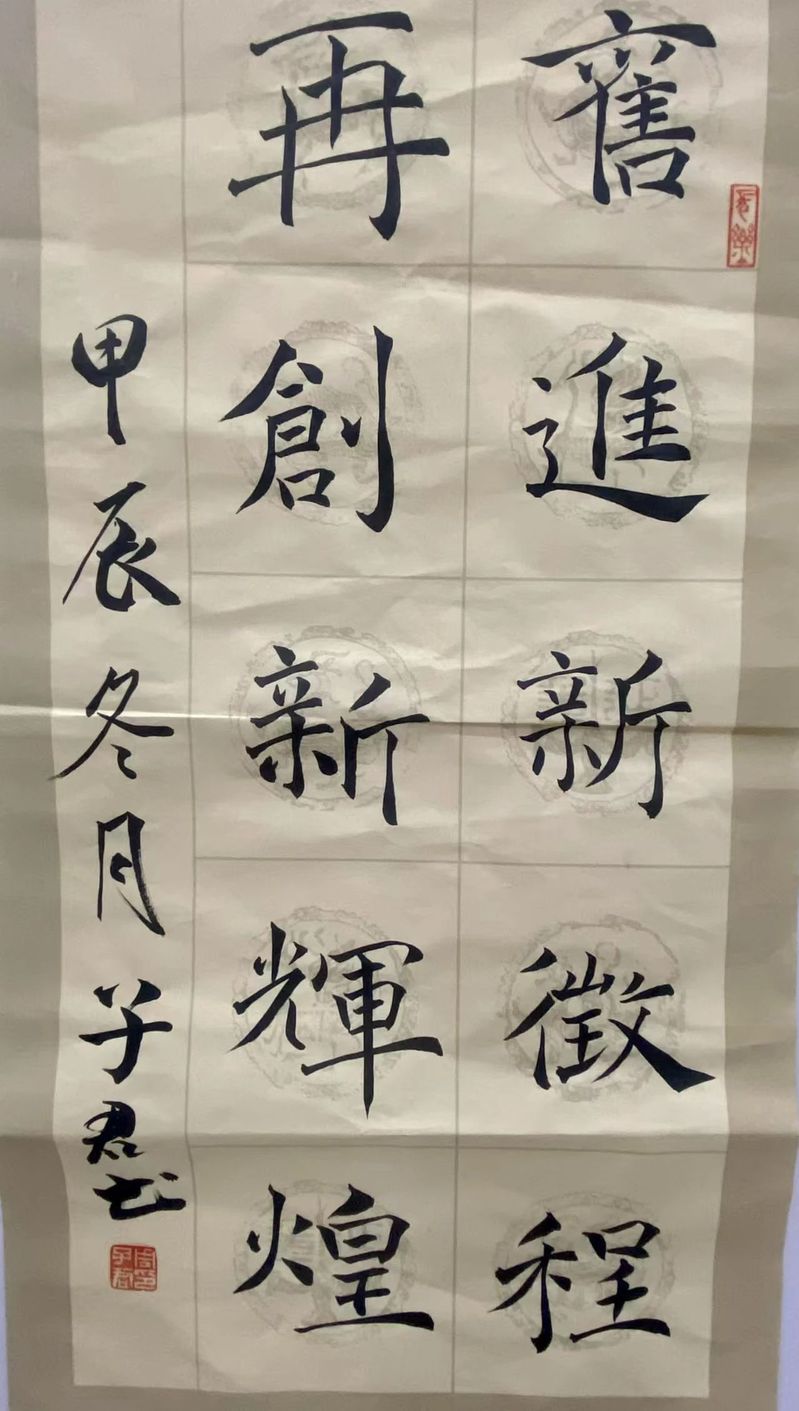 奮進新徵程
再創新輝煌
甲辰冬月子君书